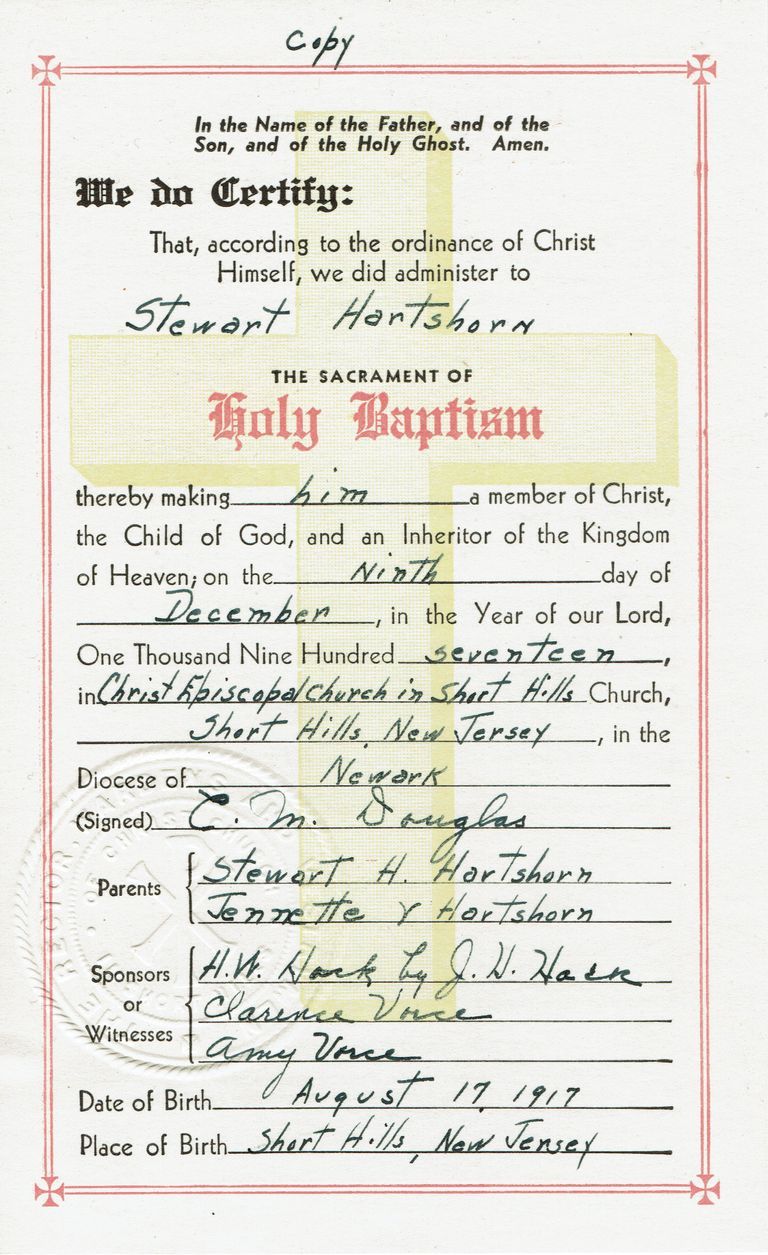 Copy
In the Name of the Father, and of the
Son, and of the Holy Ghost. Amen.
We do Certify:
That, according to the ordinance of Christ
Himself, we did administer to
Stewart Hartshorn
THE SACRAMENT OF
Holy Baptism
thereby making him a member of Christ,
the Child of God, and an Inheritor of the Kingdom
of Heaven; on the Ninth day of
December, in the Year of our Lord,
One Thousand Nine Hundred seventeen,
in Christ Episcopal Church in Short Hills Church,
Short Hills, New Jersey, in the
Diocese of Newark
(Signed) C. M. Douglas
Parents
Stewart H. Hartshorn
Jennette Y Hartshorn
Sponsors
or
Witnesses
H.W. Hack by J. H. Hack
Clarence Vorce
Amy Vorce
Date of Birth August 17, 1917
Place of Birth Short Hills, New Jersey